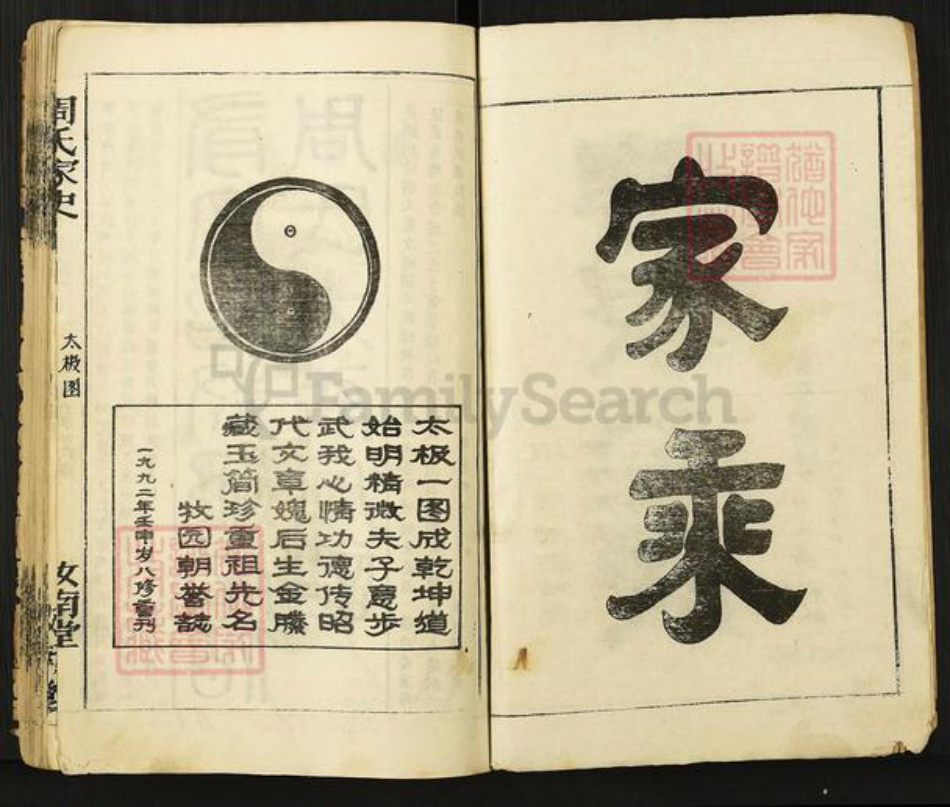 家乘
太极一图成乾坤道
始明精微夫子意步
武我心情功德传昭
代文章媿后生金縢
藏玉简珍重祖先名
牧园朝誉誌
一九九二年壬申岁八修重刊
周氏家史
太极图
汝南堂
FamilySearch